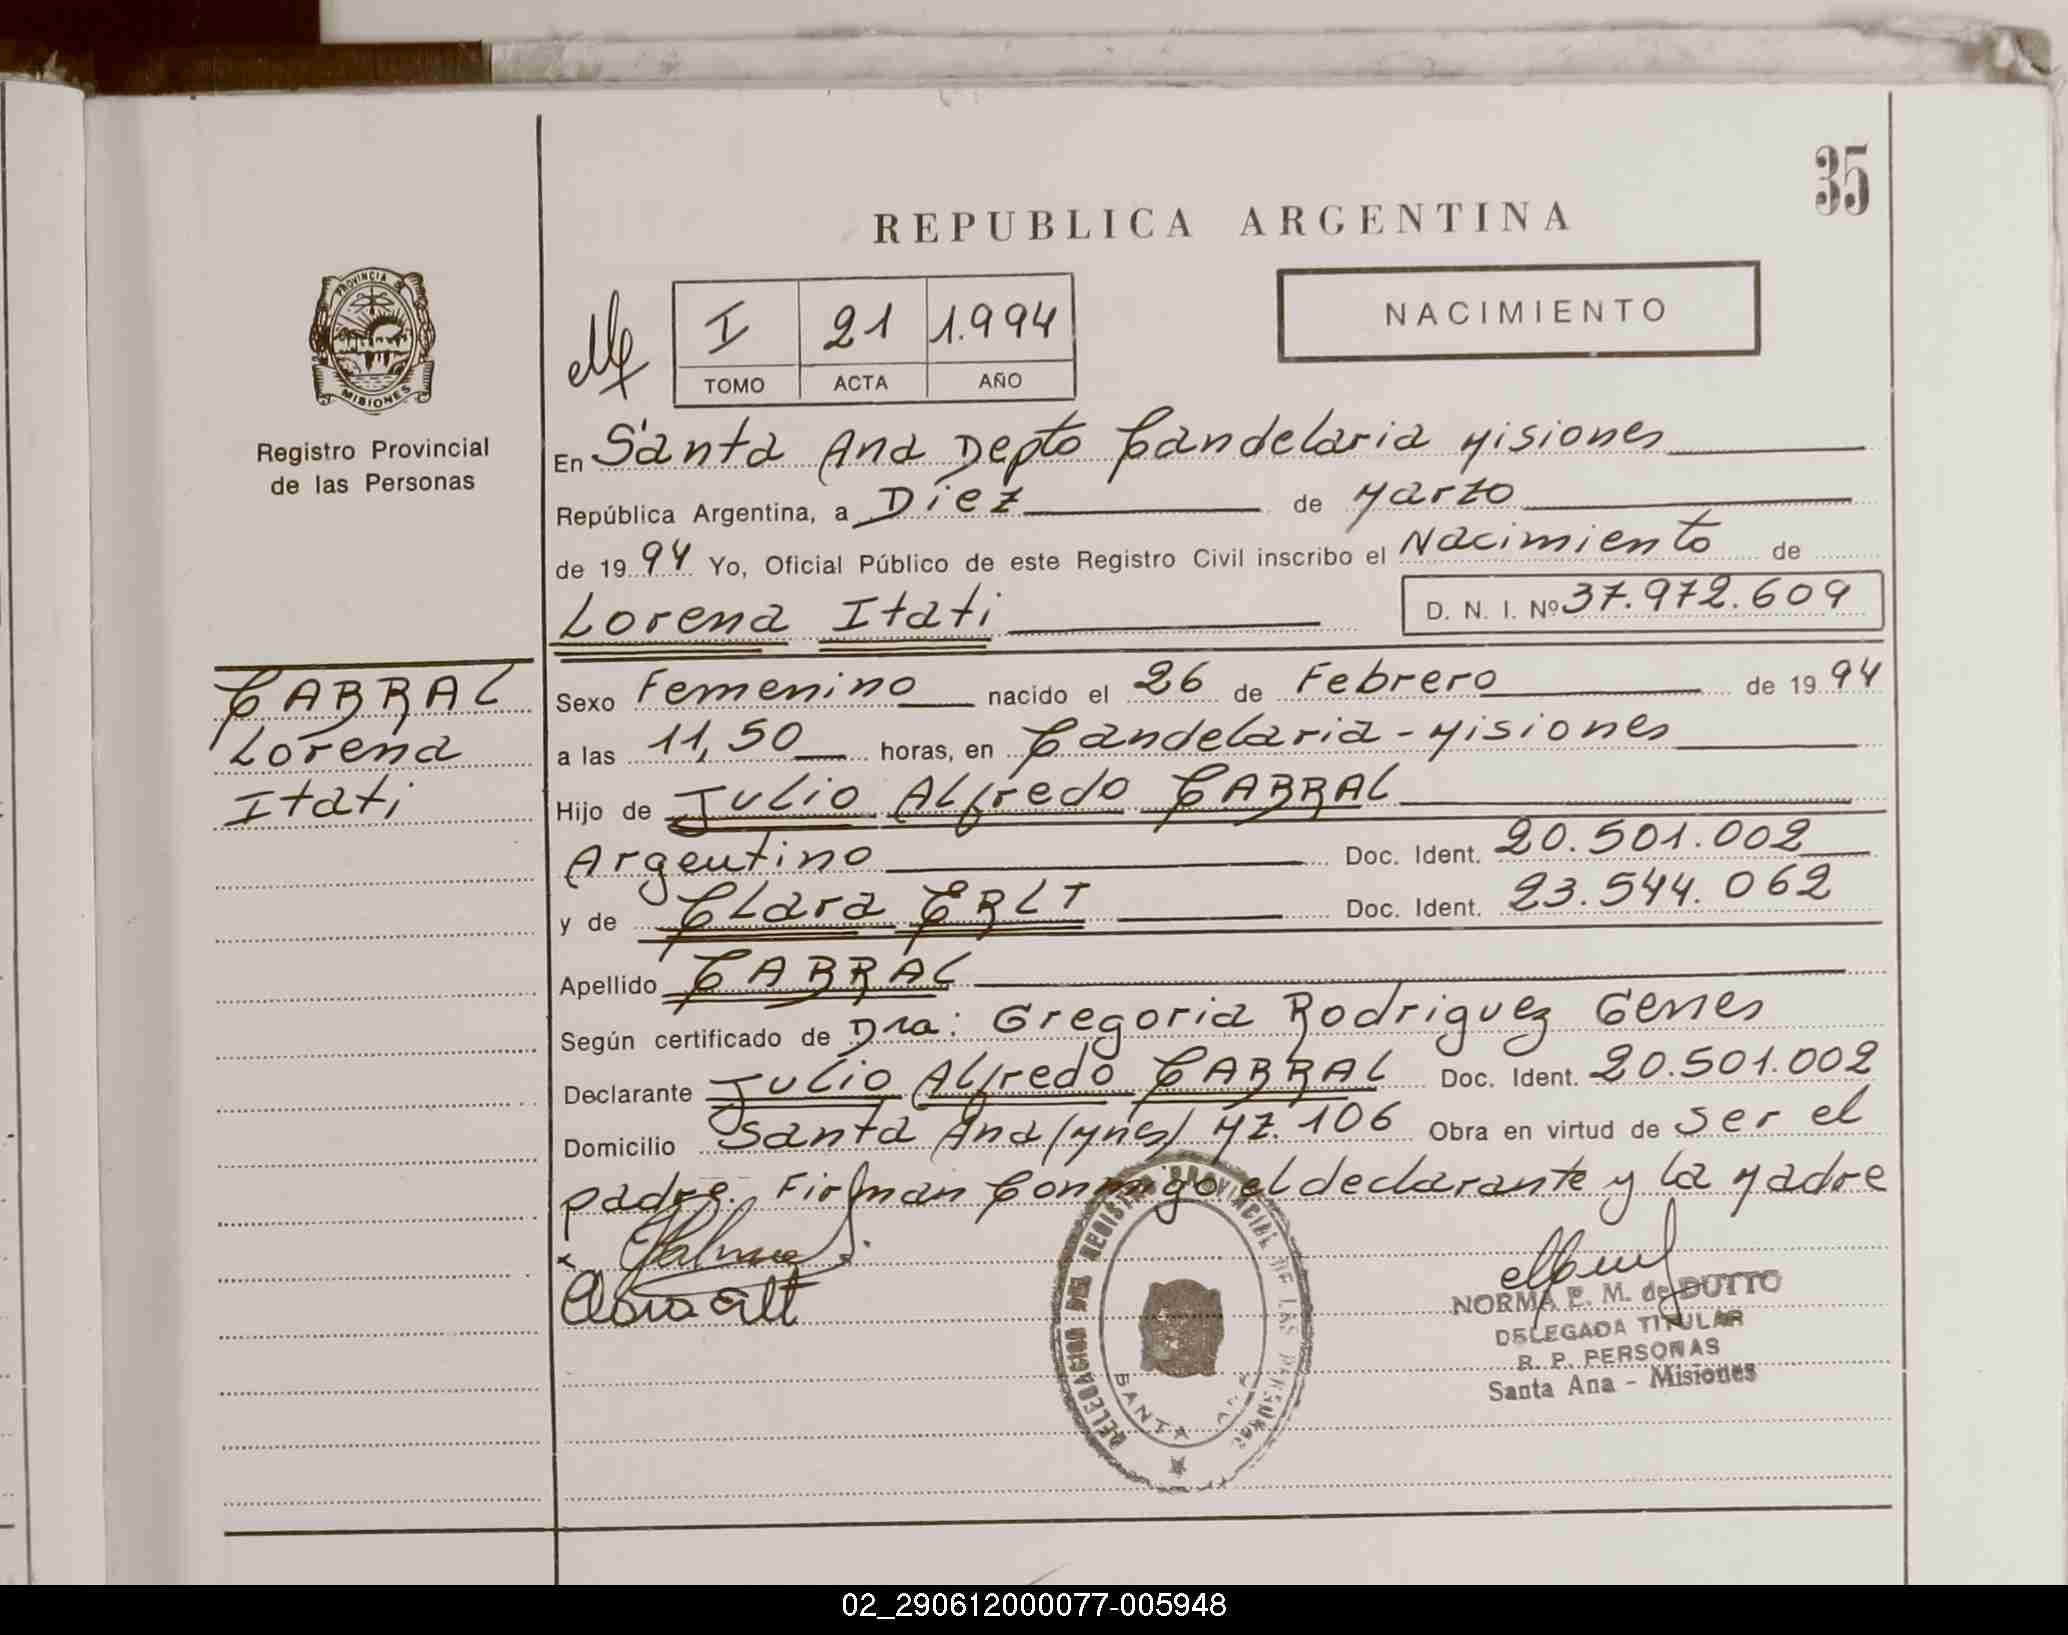 35
REPUBLICA ARGENTINA
PROVINCIA DE
MISIONES
Registro Provincial
de las Personas
I 21 1.994
TOMO ACTA AÑO
NACIMIENTO
En Santa Ana Depto Candelaria Misiones
República Argentina, a Diez de Marzo
de 1994 Yo, Oficial Público de este Registro Civil inscribo el Nacimiento de
Lorena Itati D. N. I. Nº 37.972.609
CABRAL
Lorena
Itati
Sexo Femenino nacido el 26 de Febrero de 1994
a las 11,50 horas, en Candelaria - Misiones
Hijo de Julio Alfredo CABRAL
Argentino Doc. Ident. 20.501.002
y de Clara ERLT Doc. Ident. 23.544.062
Apellido CABRAL
Según certificado de Dra: Gregoria Rodriguez Genes
Declarante Julio Alfredo CABRAL Doc. Ident. 20.501.002
Domicilio Santa Ana (Mnes) Mz. 106 Obra en virtud de ser el
padre. Firman Conmigo el declarante y la Madre
DELEGACION DEL REGISTRO PROVINCIAL DE LAS PERSONAS
SANTA ANA
NORMA E. M. de DUTTO
DELEGADA TITULAR
R. P. PERSONAS
Santa Ana - Misiones
02_290612000077-005948